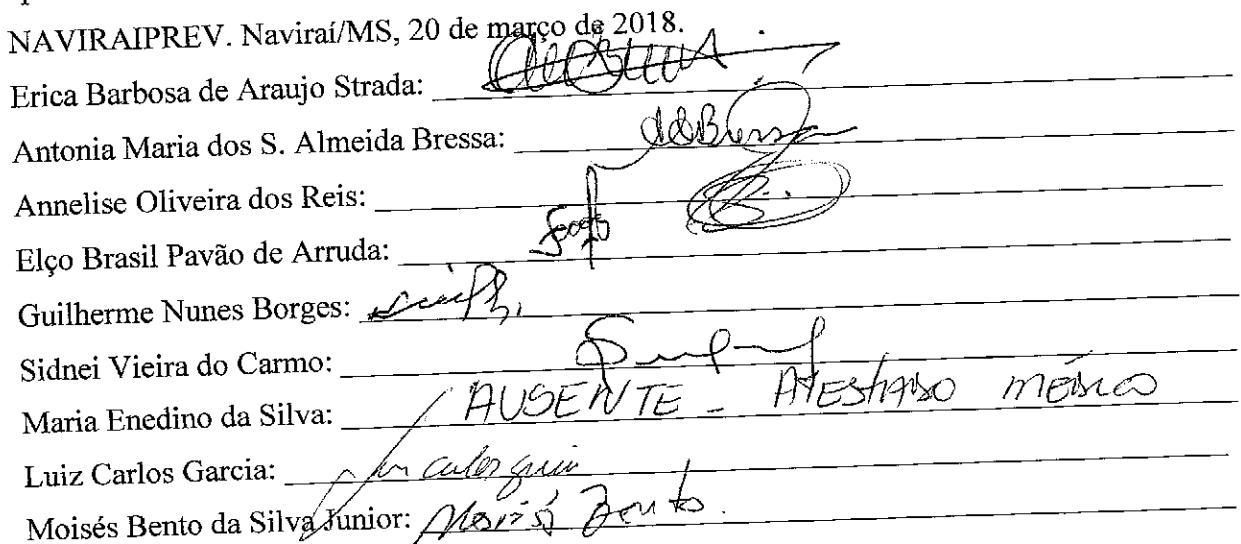 NAVIRAIPREV. Naviraí/MS, 20 de março de 2018.
Erica Barbosa de Araujo Strada:
Antonia Maria dos S. Almeida Bressa:
Annelise Oliveira dos Reis:
Elço Brasil Pavão de Arruda:
Guilherme Nunes Borges:
Sidnei Vieira do Carmo:
Maria Enedino da Silva: AUSENTE - ATESTADO MÉDICO
Luiz Carlos Garcia:
Moisés Bento da Silva Junior: Moisés Bento.